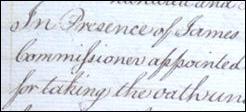 In Presence of James
Commissioner appointed
for taking the oath un